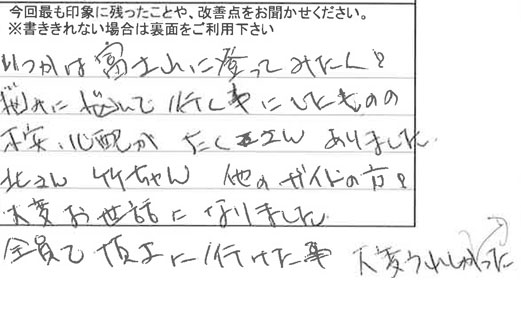 今回最も印象に残ったことや、改善点をお聞かせください。
※書ききれない場合は裏面をご利用下さい
いつかは富士山に登ってみたいと
悩みに悩んで行く事にしたものの
不安、心配が たくさん ありました。
北さん 竹ちゃん 他のガイドの方と
大変お世話になりました
全員で頂上に行けた事 大変うれしかった